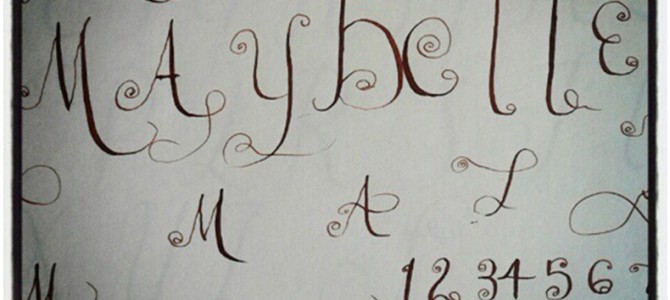 MAybelle
M A L
M 1 2 3 4 5 6